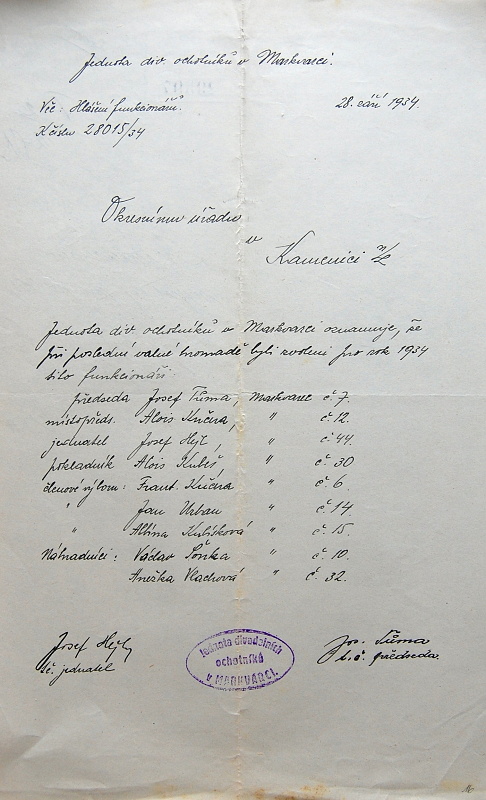 Jednota div. ochotníků v Markvarci.
Věc: Hlášení funkcionářů.
K číslu 28015/34
28. září 1934.
Okresnímu úřadu
v
Kamenici n/L
Jednota div. ochotníků v Markvarci oznamuje, že
při poslední valné hromadě byli zvoleni pro rok 1934
tito funkcionáři:
předseda Josef Tůma, Markvarec č. 7.
místopřed. Alois Kučera, " č. 12.
jednatel Josef Hejl, " č. 44.
pokladník Alois Kubeš, " č. 30
členové výboru: Frant. Kučera " č. 6
" Jan Urban " č. 14.
" Albína Kubíšková " č. 15.
Náhradníci: Václav Šonka " č. 10.
Anežka Vlachová " č. 32.
Josef Hejl
t. č. jednatel
Jednota divadelních
ochotníků
v MARKVARCI.
Jos. Tůma
t. č. předseda.